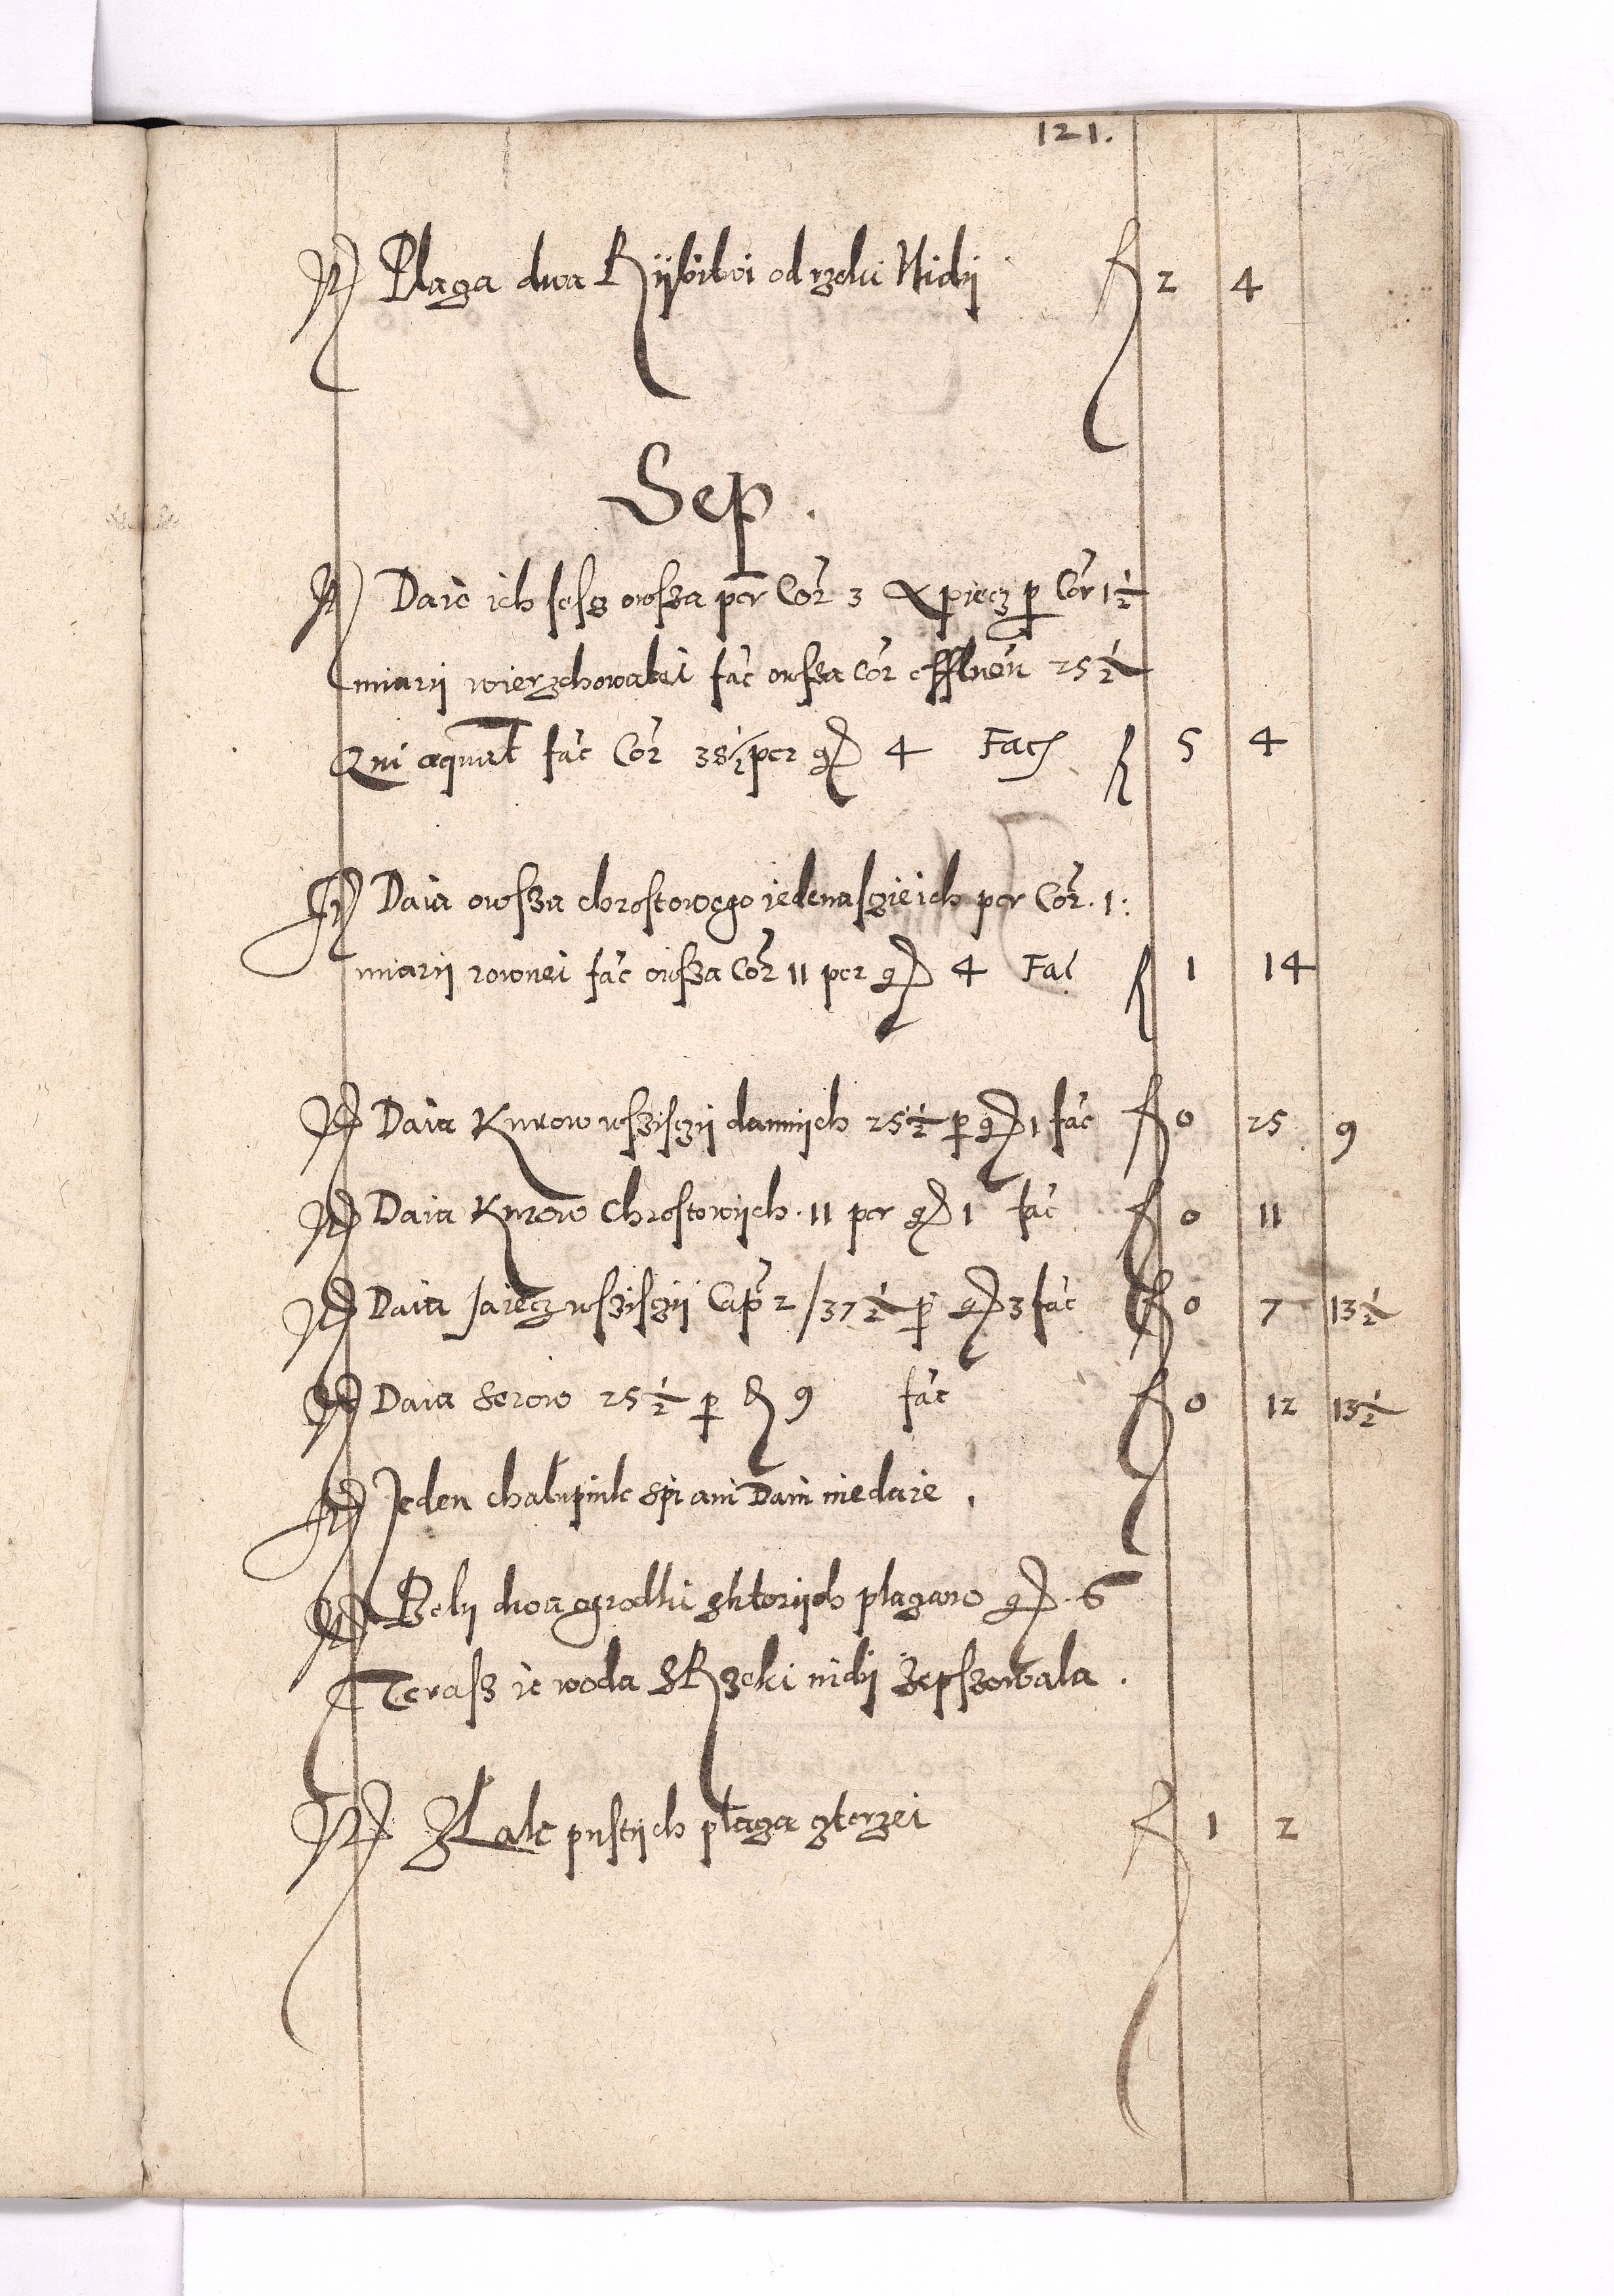 121.
It Placza dwa Rÿbitwi od rzeki Nidÿ fl 2 4
Sep.
It Daie ich sesß owsza per Cor 3 & piecz p Cor 1½
miarÿ wierzchowatei fac owsza Cor 25½
Qui aequat fac Cor 38½ per gr 4 Facit fl 5 4
It Daia owsza chrostowego iedenasczie ich per Cor. 1:
miarÿ rownei fac owsza Cor 11 per gr 4 Fac fl 1 14
It Daia Kurow wsziscÿ dannÿch 25½ p gr 1 fac fl 0 25 9
It Daia Kurow Chrostowÿch. 11 per gr 1 fac fl 0 11
It Daia Jaiecz wsziscÿ Cap 2 / 37½ p gr 3 fac fl 0 7 13½
It Daia Serow 25½ p d 9 fac fl 0 12 13½
It Jeden chalupnik Spi ani Dani niedaie.
It Belÿ dwa ogrodki ktorÿch placzano gr. 6
Terasz ie woda z Rzeki nidÿ Zepszowala.
It Z Lak pustÿch placza fl 1 2